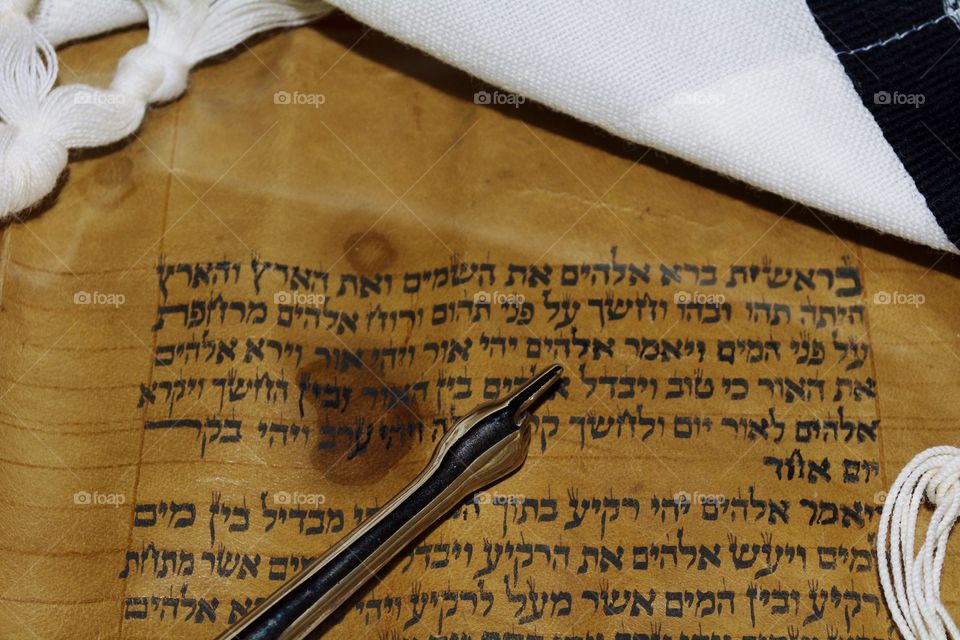 foap foap foap foap foap
בראשית ברא אלהים את השמים ואת הארץ והארץ
foap foap foap foap foap
היתה תהו ובהו וחשך על פני תהום ורוח אלהים מרחפת
על פני המים ויאמר אלהים יהי אור ויהי אור וירא אלהים
את האור כי טוב ויבדל אלהים בין האור ובין החשך ויקרא
אלהים לאור יום ולחשך ויהי ערב ויהי בקר
יום אחד
foap foap foap foap foap
ויאמר אלהים יהי רקיע בתוך מבדיל בין מים
למים ויעש אלהים את הרקיע ויבדל אשר מתחת
לרקיע ובין המים אשר מעל לרקיע ויהי אלהים